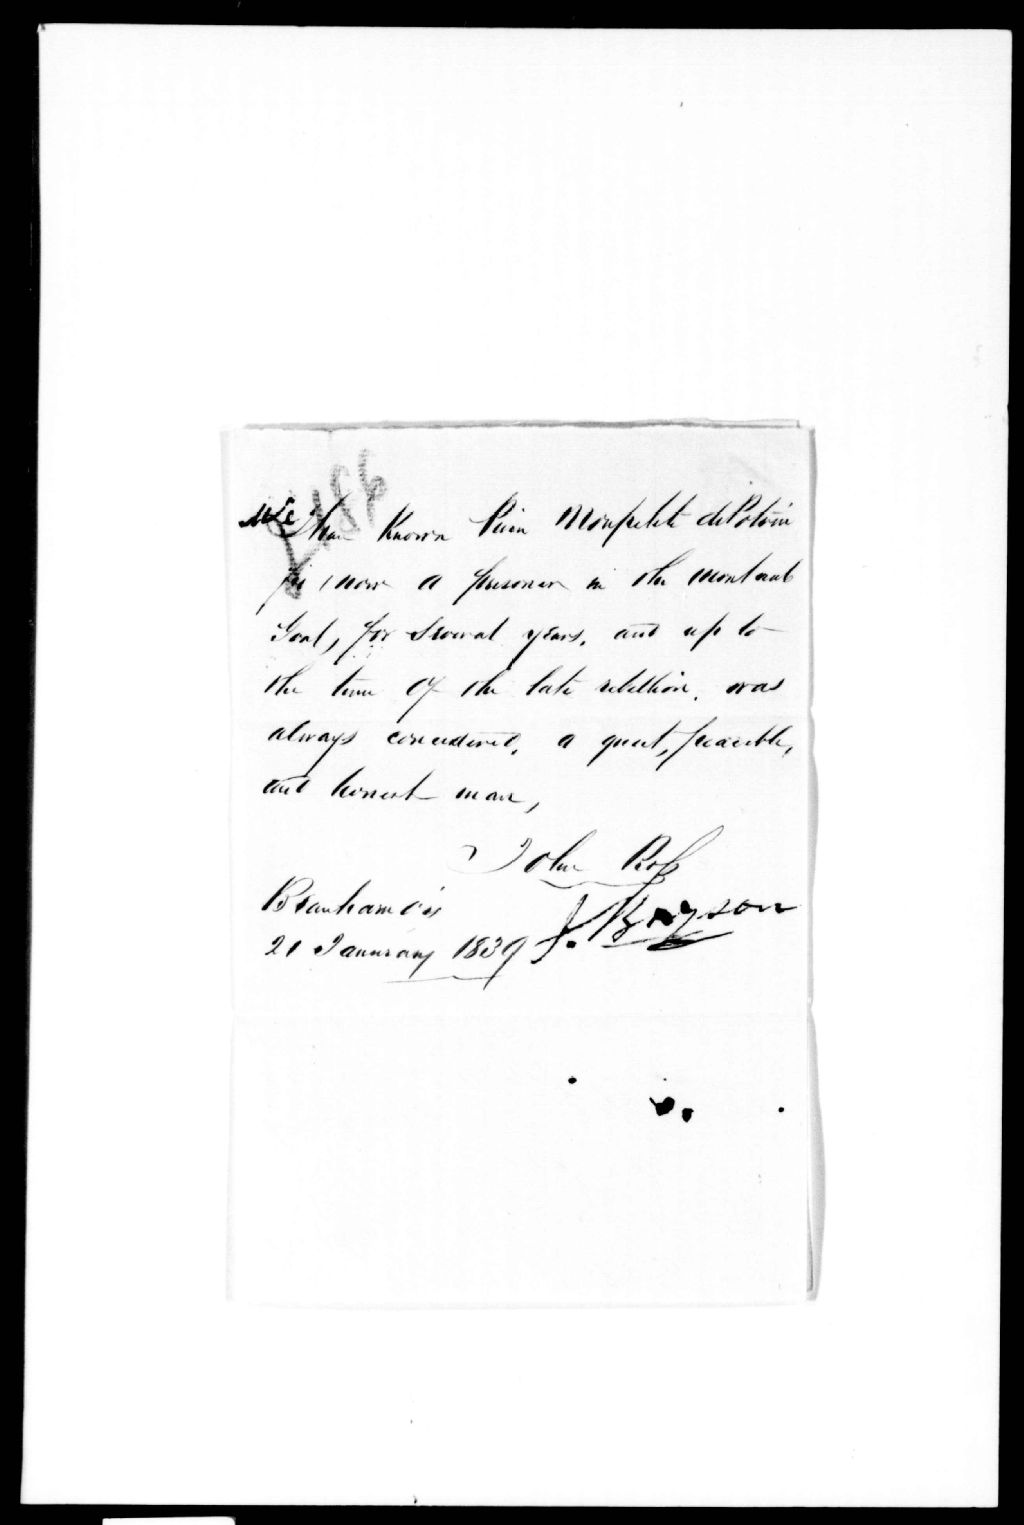 2186
We have Known Pierre Monpetit dit Potvin
fils, now a prisoner in the montreal
Goal, for several years, and up to
the time of the late rebellion. was
always considered, a quiet, peacible,
and honest man,
John Ross
J. Bryson
Beauharnois
21 Jannrary 1839